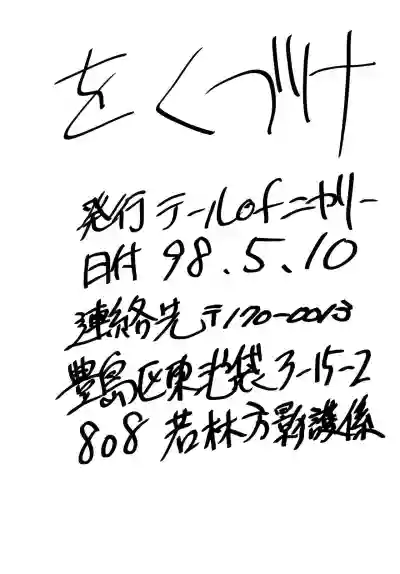 をくづけ
発行 テールofニャリー
日付 98.5.10
連絡先 〒170-0013
豊島区東池袋3-15-2
808 若林方影護係